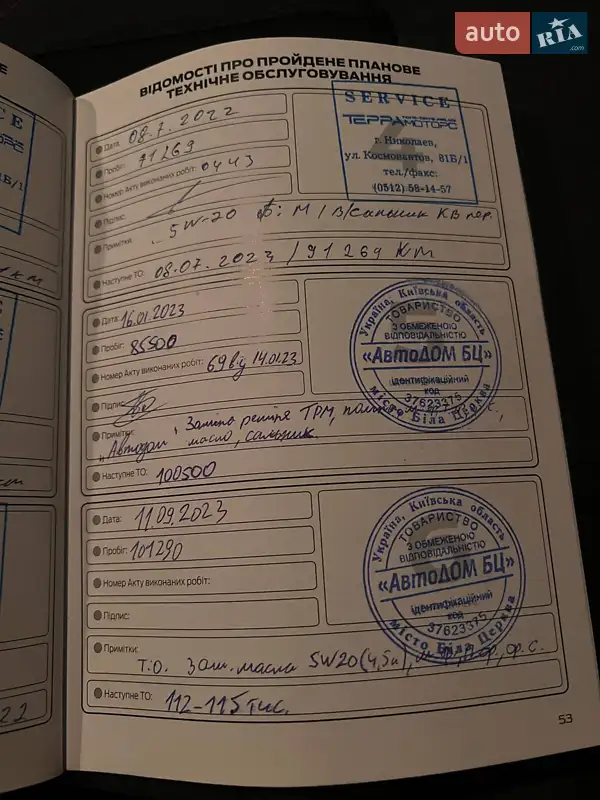 auto RIA .com
ВІДОМОСТІ ПРО ПРОЙДЕНЕ ПЛАНОВЕ
ТЕХНІЧНЕ ОБСЛУГОВУВАННЯ
Дата: 08.7.2022
Пробіг: 71269
Номер Акту виконаних робіт: 0443
Підпис:
Примітки: 5W-20 М/В/Сальник КВ пер.
Наступне ТО: 08.07.2023/91269 КМ
4
SERVICE
ТЕРРАМОТОРС
г. Николаев,
ул. Космонавтов, 81Б/1
тел./факс:
(0512) 58-14-57
Дата: 16.01.2023
Пробіг: 85500
Номер Акту виконаних робіт: 69 від 14.01.23
Підпис:
Примітки: Заміна ременя ТРМ,
"Автодом" масло, сальник.
Наступне ТО: 100500
Україна, Київська область
ТОВАРИСТВО
З ОБМЕЖЕНОЮ
ВІДПОВІДАЛЬНІСТЮ
«АвтоДОМ БЦ»
ідентифікаційний
код
37623375
місто Біла Церква
Дата: 11.09.2023
Пробіг: 101290
Номер Акту виконаних робіт:
Підпис:
Примітки:
Т.О. Зам. масла 5W20 (4,5л),
Наступне ТО: 112-115 тис.
Україна, Київська область
ТОВАРИСТВО
З ОБМЕЖЕНОЮ
ВІДПОВІДАЛЬНІСТЮ
«АвтоДОМ БЦ»
ідентифікаційний
код
37623375
місто Біла Церква
53